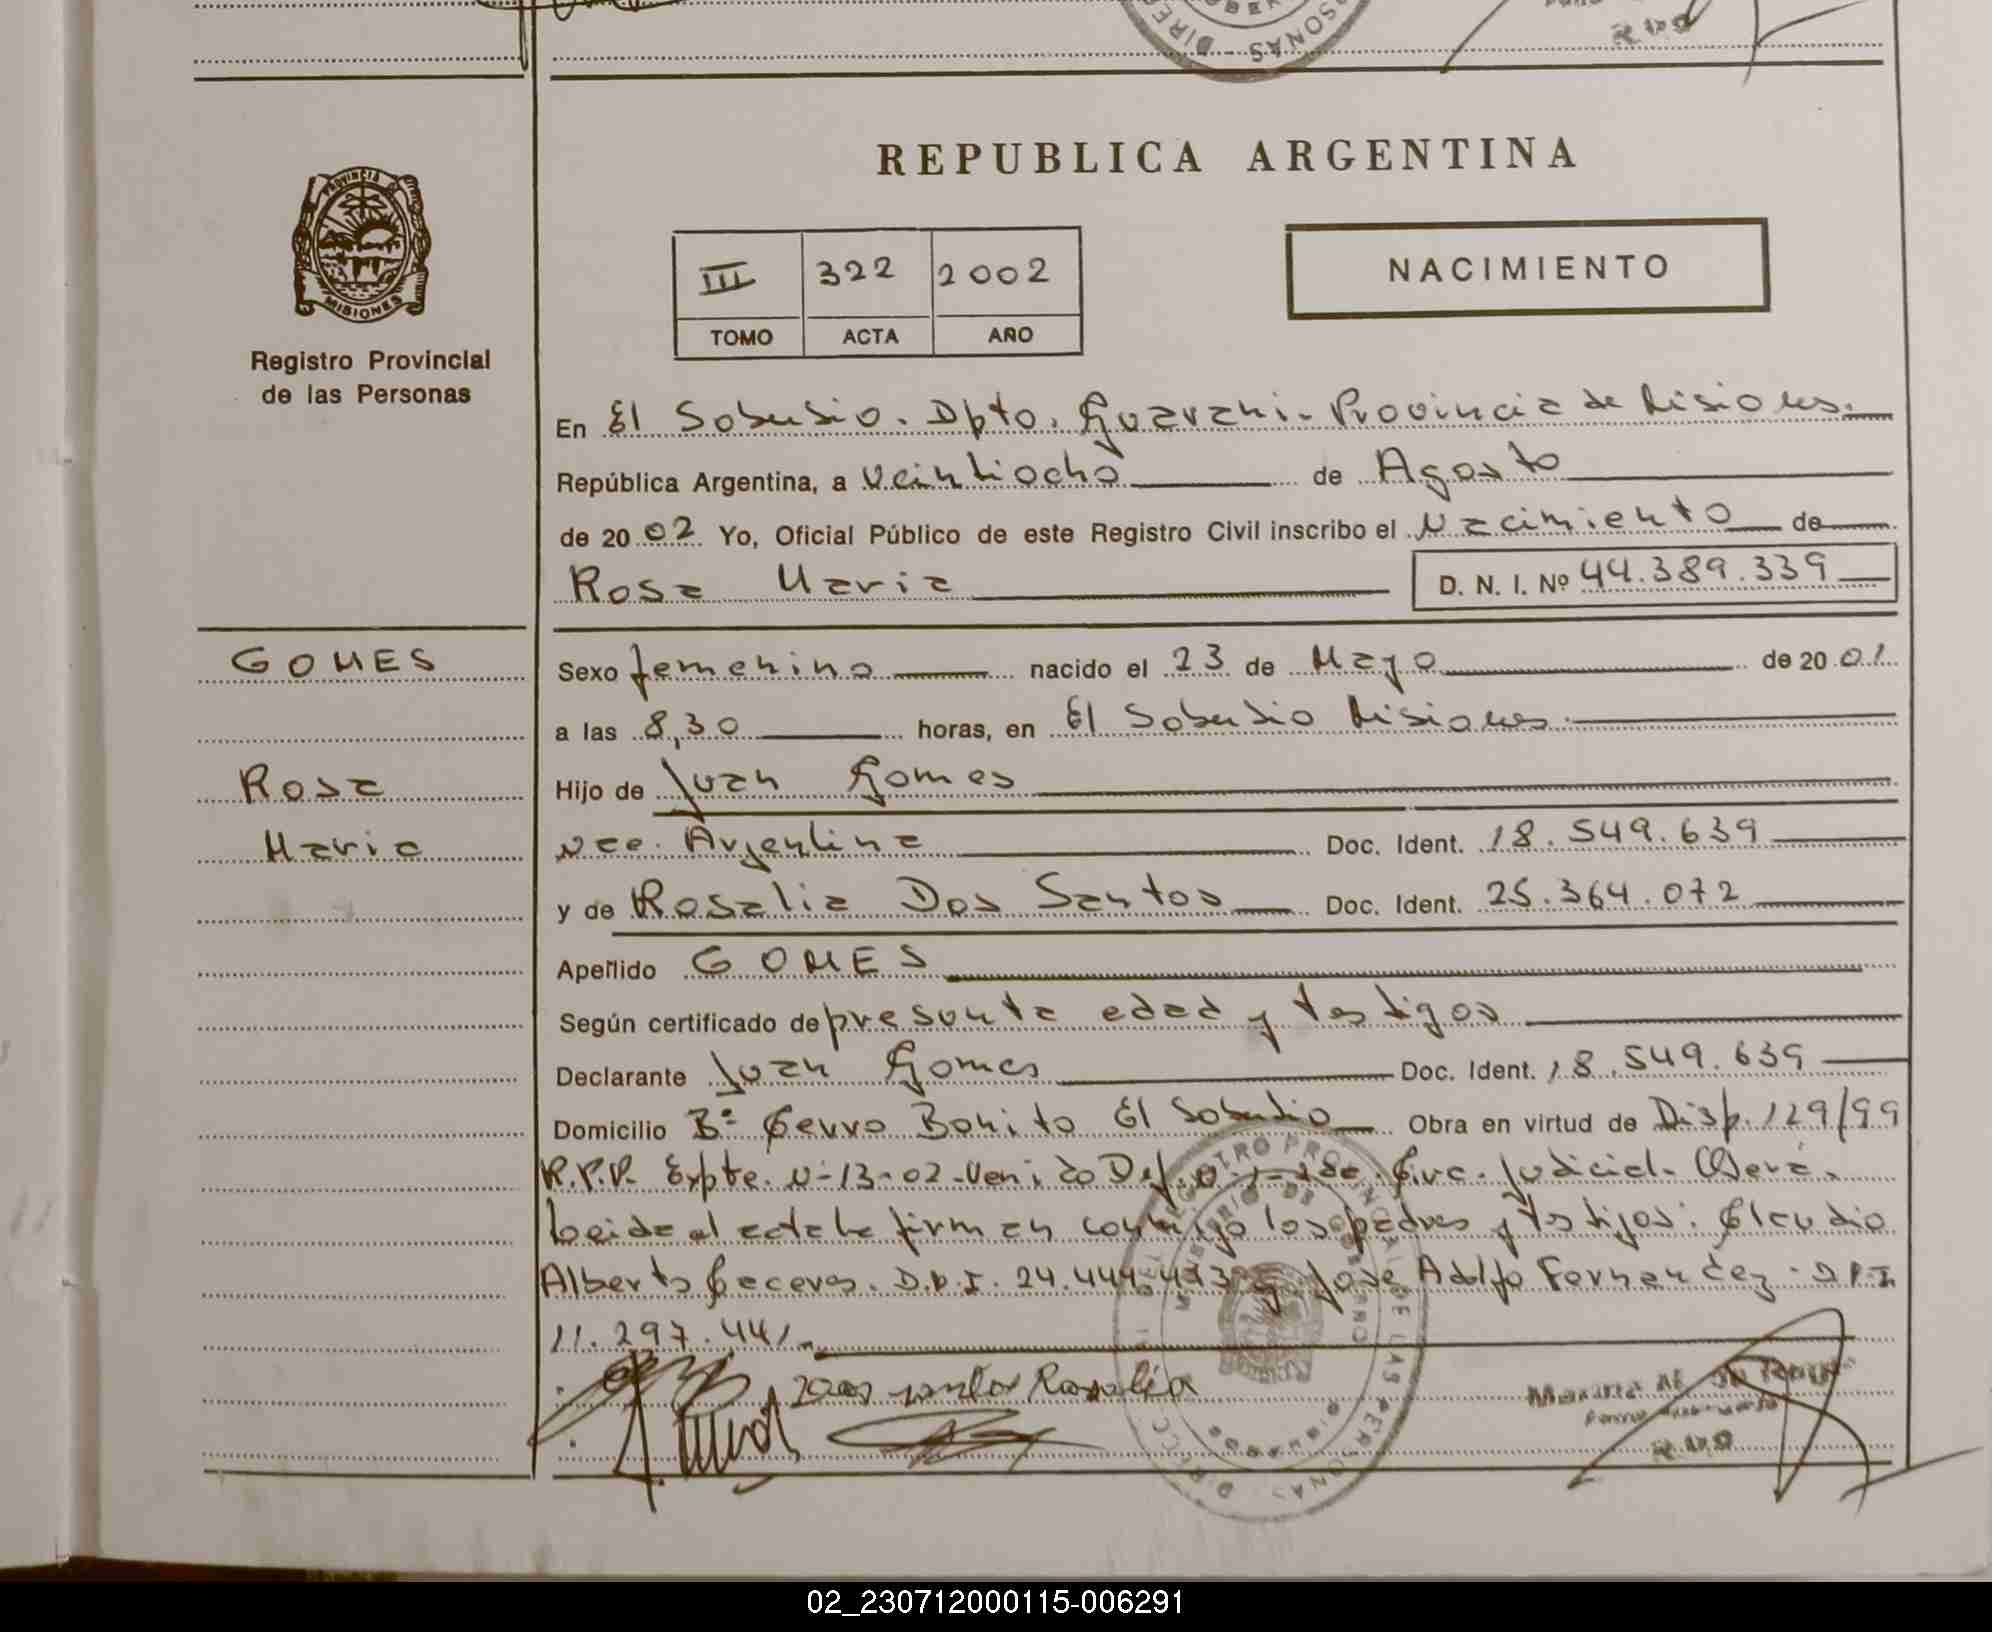 REPUBLICA ARGENTINA
PROVINCIA DE
MISIONES
Registro Provincial
de las Personas
III 322 2002
TOMO ACTA AÑO
NACIMIENTO
En El Soberbio. Dpto. Guarani - Provincia de Misiones.
República Argentina, a veintiocho de Agosto
de 2002 Yo, Oficial Público de este Registro Civil inscribo el Nacimiento de
Rosa Maria D. N. I. Nº 44.389.339
GOMES
Rosa
Maria
Sexo femenino nacido el 23 de Mayo de 2001
a las 8,30 horas, en El Soberbio Misiones.
Hijo de Juan Gomes
nac. Argentina Doc. Ident. 18.549.639
y de Rosalia Dos Santos Doc. Ident. 25.364.072
Apellido GOMES
Según certificado de presunta edad y testigos
Declarante Juan Gomes Doc. Ident. 18.549.639
Domicilio Bº Cerro Bonito El Soberbio Obra en virtud de Disp. 129/99
R.P.P. Expte. Nº 13-02 - Venido Def. Circ. Judicial - Oberá.
Leida el acta la firman conmigo los padres y testigos: Claudio
Alberto Caceres. D.N.I. 24.444. y Jose Adolfo Fernandez - D.N.I
11.297.441.-
Dos santos Rosalia
02_230712000115-006291